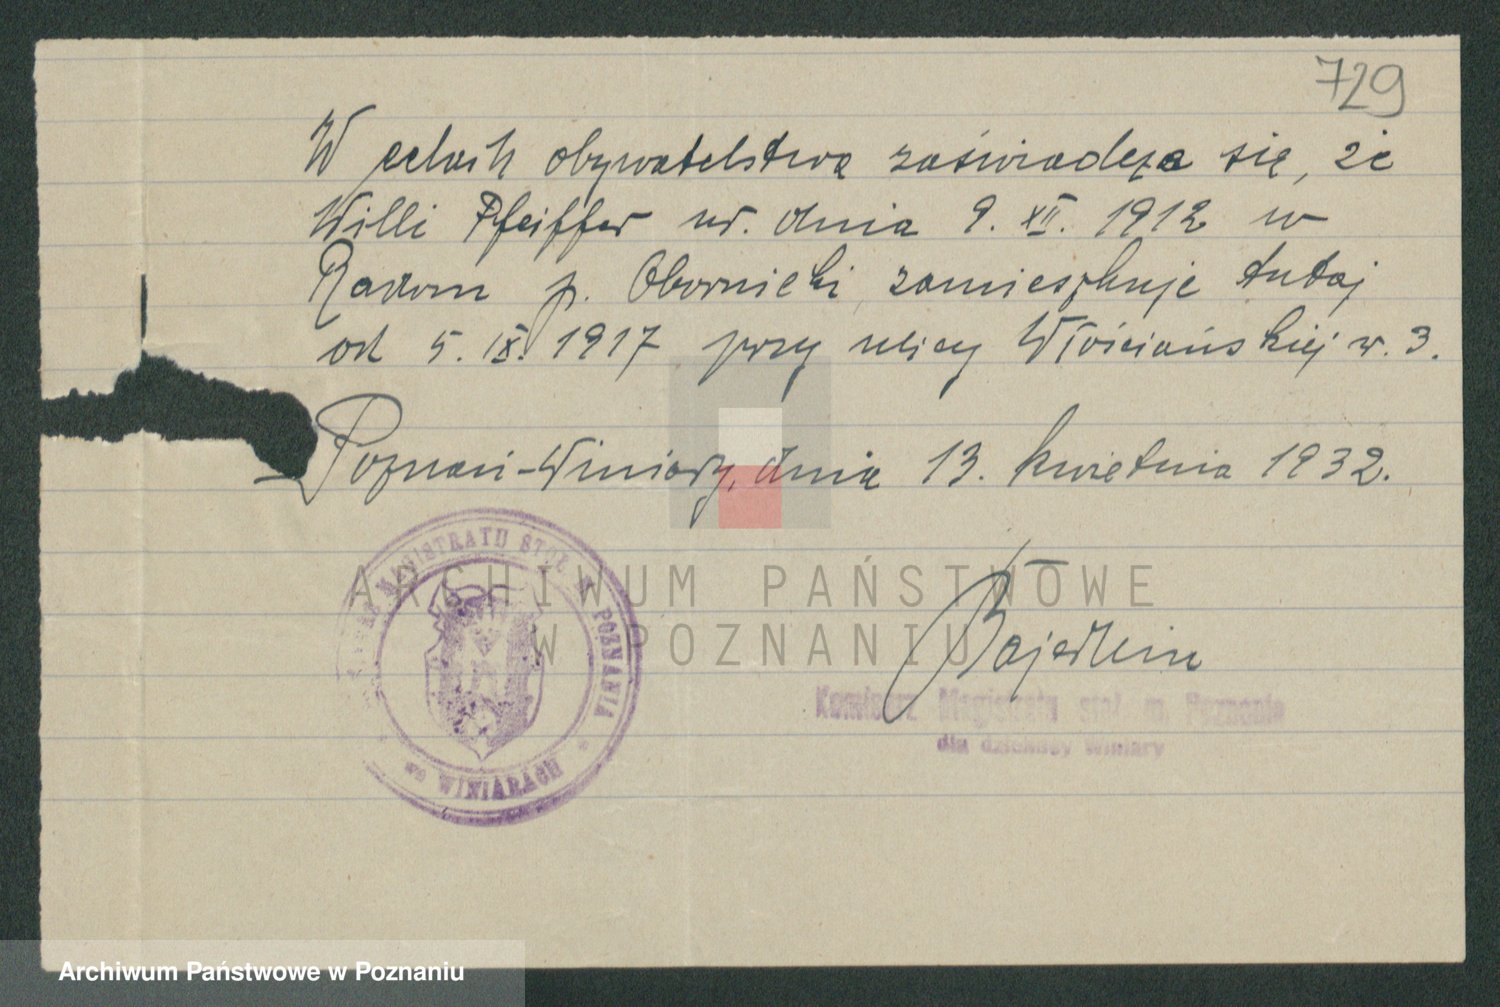 729
W celach obywatelstwa zaświadcza się, że
Willi Pfeiffer ur. dnia 9. XII. 1912 w
Radom p. Obornicki, zamieszkuje tutaj
od 5. IX. 1917 przy ulicy Włościańskiej nr. 3.
Poznań-Winiary, dnia 13. kwietnia 1932.
MAGISTRATU STOŁ. M. POZNANIA
WINIARACH
ARCHIWUM PAŃSTWOWE
W POZNANIU
Komisarz Magistratu stoł. m. Poznania
dla dzielnicy Winiary
Archiwum Państwowe w Poznaniu